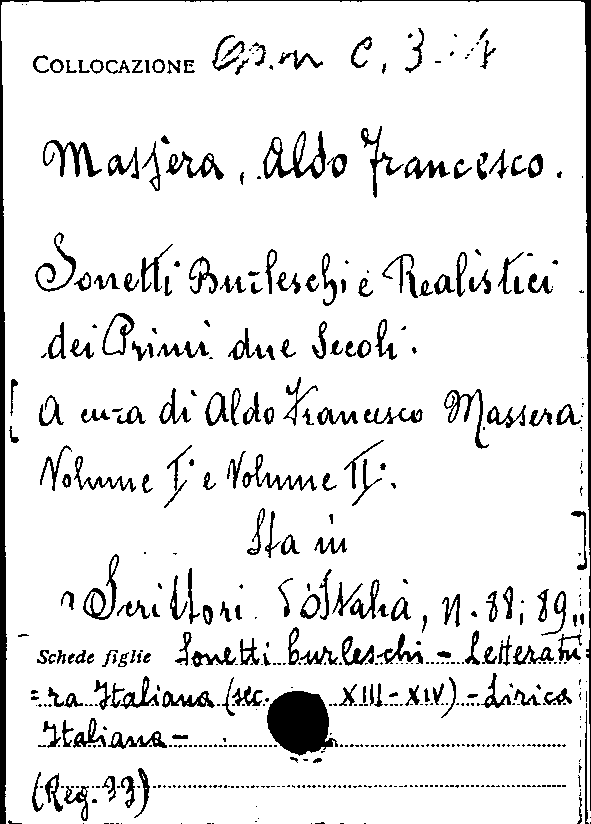 COLLOCAZIONE C, 3. : 4
Massera, Aldo Francesco.
Sonetti Burleschi e Realistici
dei Primi due Secoli.
[ A cura di Aldo Francesco Massera
Volume I° e Volume II°.
Sta in ]
"Scrittori d'Italia, n. 88; 89"
Schede figlie Sonetti burleschi - Letteratu=
=ra Italiana (sec. XIII - XIV) - Lirica
Italiana -
(Reg. 33)